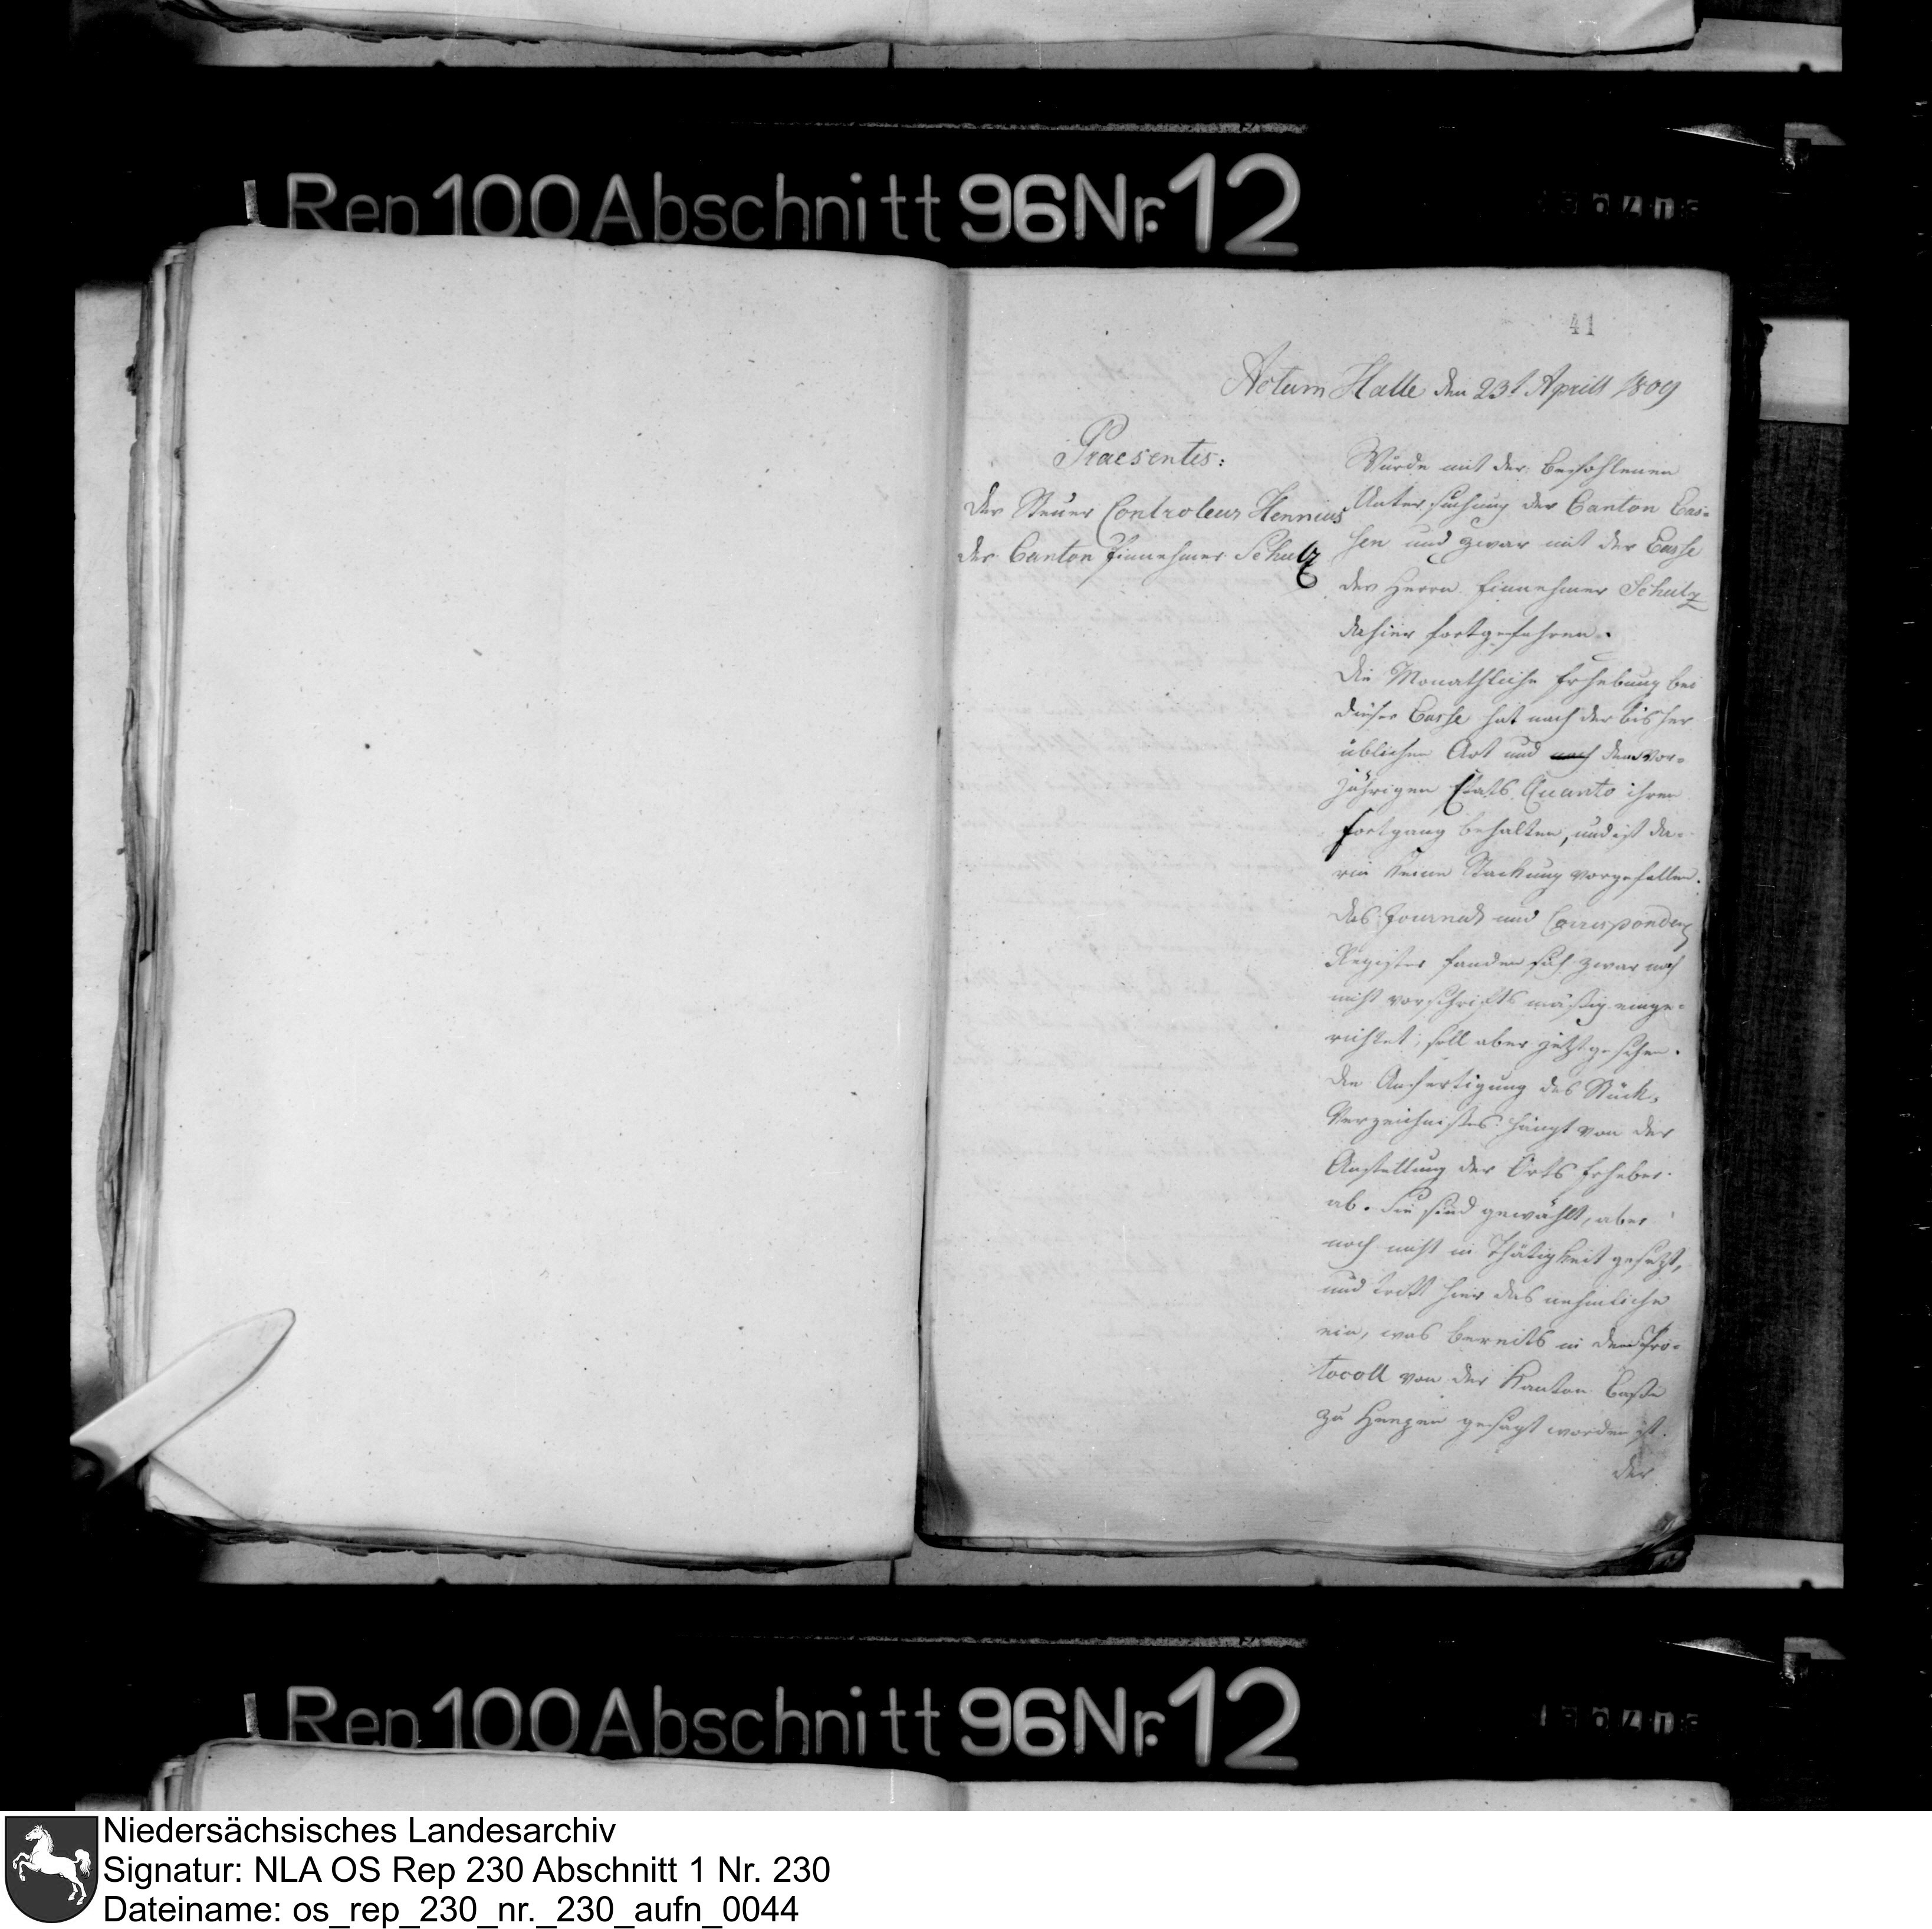 Rep 100 Abschnitt 96 Nr. 12
41
Actum Halle den 23t Aprill 1809
Praesentes:
der Steuer Controleur Hennius
der Canton Einnehmer Schultz
Wurde mit der befohlenen
Untersuchung der Canton Cas-
sen und zwar mit der Casse
des Herrn Einnehmer Schultz
dahier fortgefahren.
Die Monathliche Erhebung bei
dieser Casse hat nach der bisher
üblichen Art und nach dem vor-
jährigen Etats Quanto ihren
Fortgang behalten, und ist da-
rin keine Stockung vorgefallen.
Das Journal und Correspondenz
Register fanden sich zwar noch
nicht vorschriftsmäßig einge-
richtet, soll aber jetzt geschehen.
Die Anfertigung des Stück-
Verzeichnißes hängt von der
Anstellung der Orts Erheber
ab. Sie sind gewählt, aber
noch nicht in Thätigkeit gesetzt,
und tritt hier das nehmliche
ein, was bereits in dem Pro-
tocoll von der Kanton Casse
zu gesagt worden ist.
Der
Rep 100 Abschnitt 96 Nr. 12
Niedersächsisches Landesarchiv
Signatur: NLA OS Rep 230 Abschnitt 1 Nr. 230
Dateiname: os_rep_230_nr._230_aufn_0044